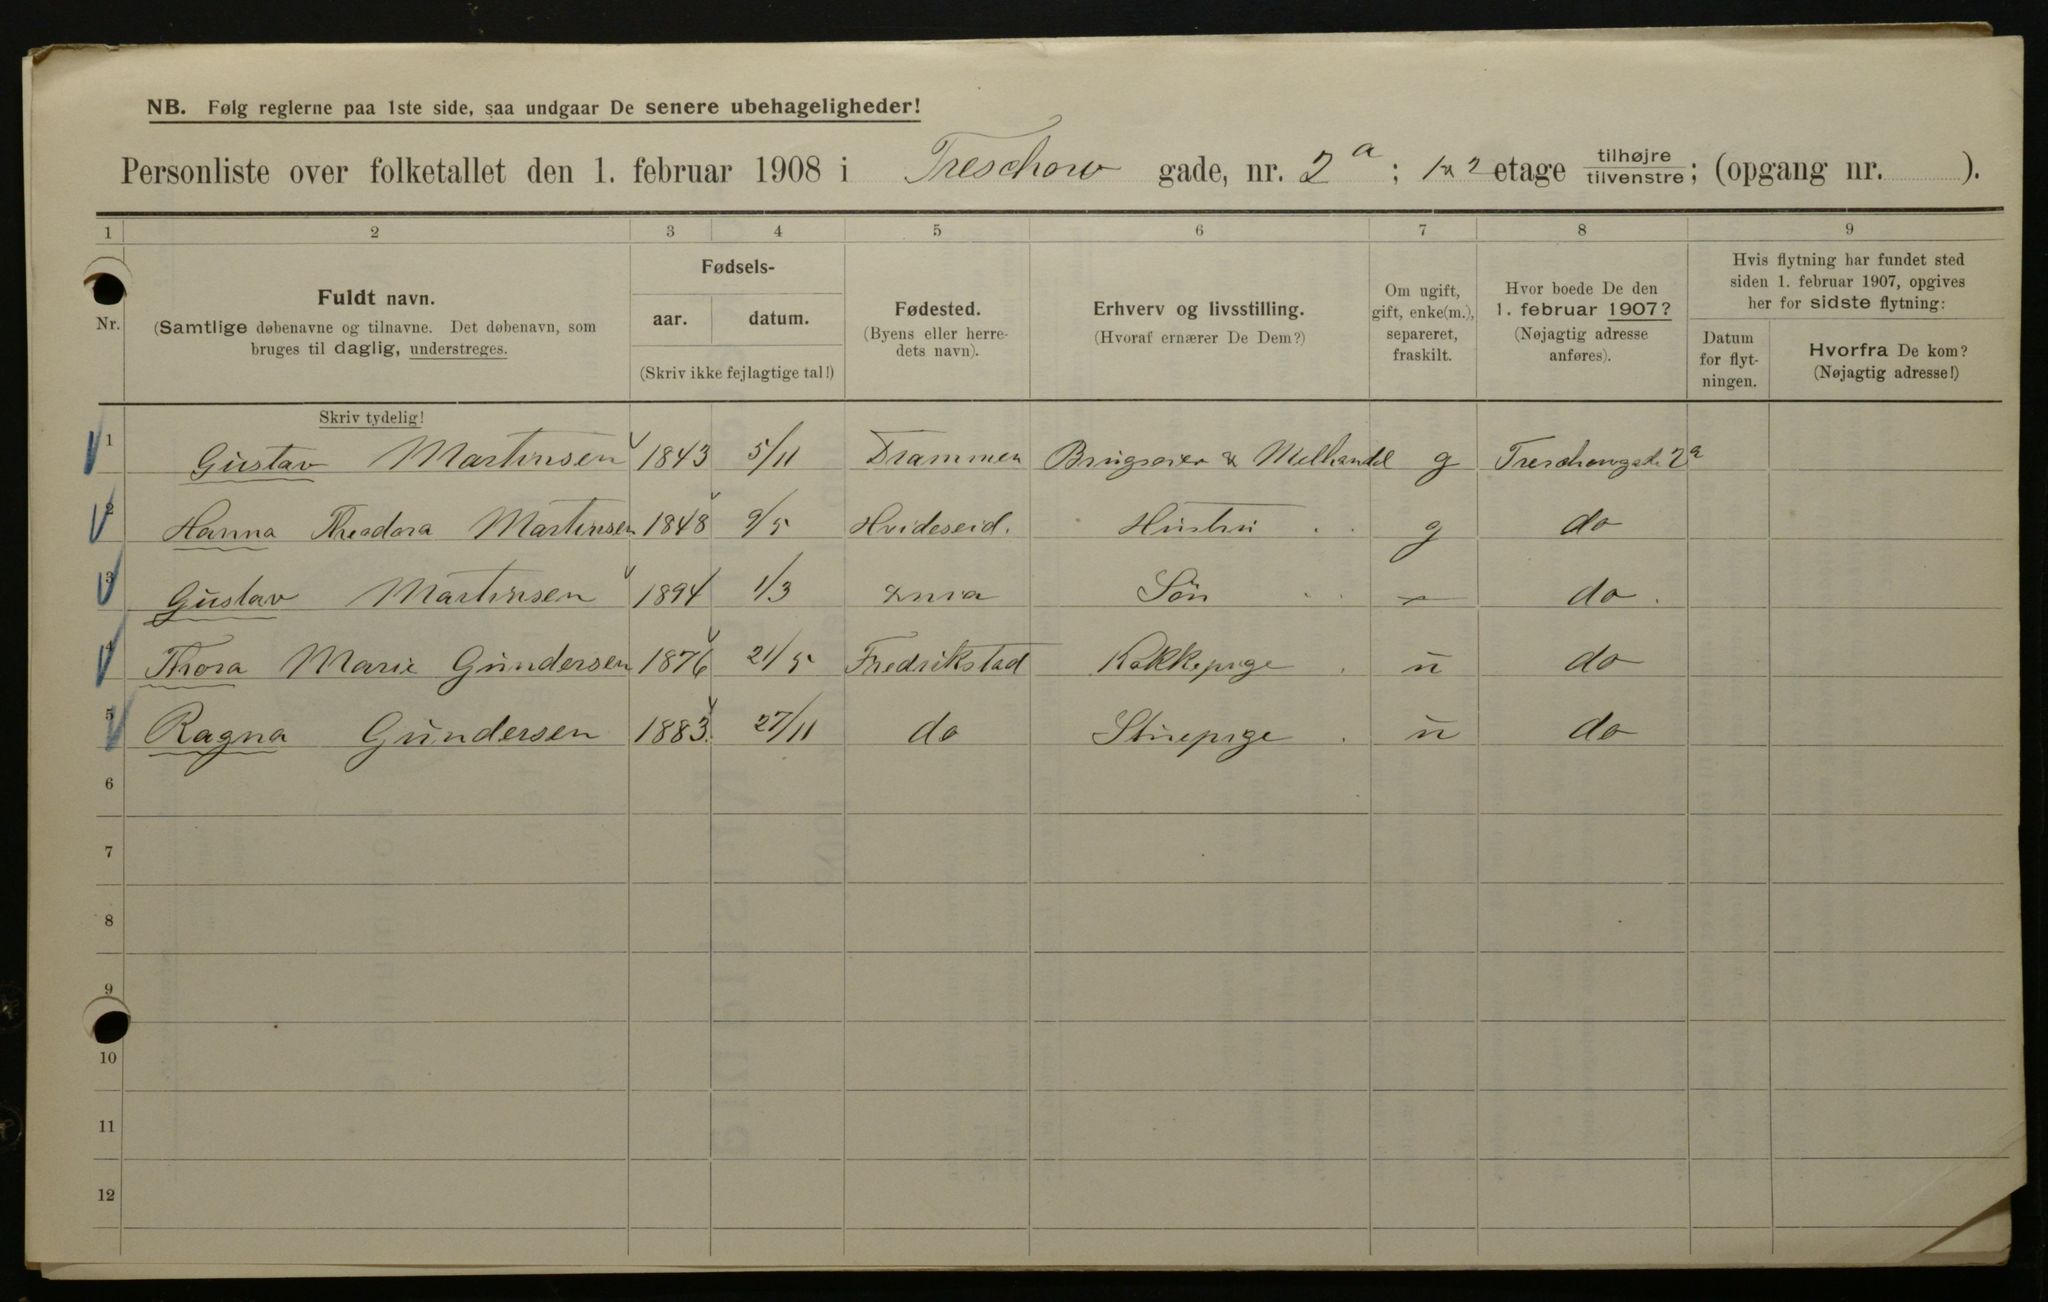 NB. Følg reglerne paa 1ste side, saa undgaar De senere ubehageligheder!
Personliste over folketallet den 1. februar 1908 i Treschow gade, nr. 2a; 1 2 etage tilhøjre tilvenstre; (opgang nr. ).
1 2 3 4 5 6 7 8 9
Nr.
Fuldt navn.
(Samtlige døbenavne og tilnavne. Det døbenavn, som
bruges til daglig, understreges.
Skriv tydelig!
Fødsels-
aar. datum.
(Skriv ikke fejlagtige tal!)
Fødested.
(Byens eller herre-
dets navn).
Erhverv og livsstilling.
(Hvoraf ernærer De Dem?)
Om ugift,
gift, enke(m.),
separeret,
fraskilt.
Hvor boede De den
1. februar 1907?
(Nøjagtig adresse
anføres).
Hvis flytning har fundet sted
siden 1. februar 1907, opgives
her for sidste flytning:
Datum
for flyt-
ningen.
Hvorfra De kom?
(Nøjagtig adresse!)
1 Gustav Martinsen 1843 5/11 Drammen & Melhandel g Treschowgade 2a
2 Hanna Theodora Martinsen 1848 9/5 Hvideseid. Hustru g do
3 Gustav Martinsen 1894 1/3 Søn do.
4 Thora Marie Gundersen 1876 21/5 Fredrikstad Kokkepige u do
5 Ragna Gundersen 1883 27/11 do Stuepige u do
6
7
8
9
10
11
12